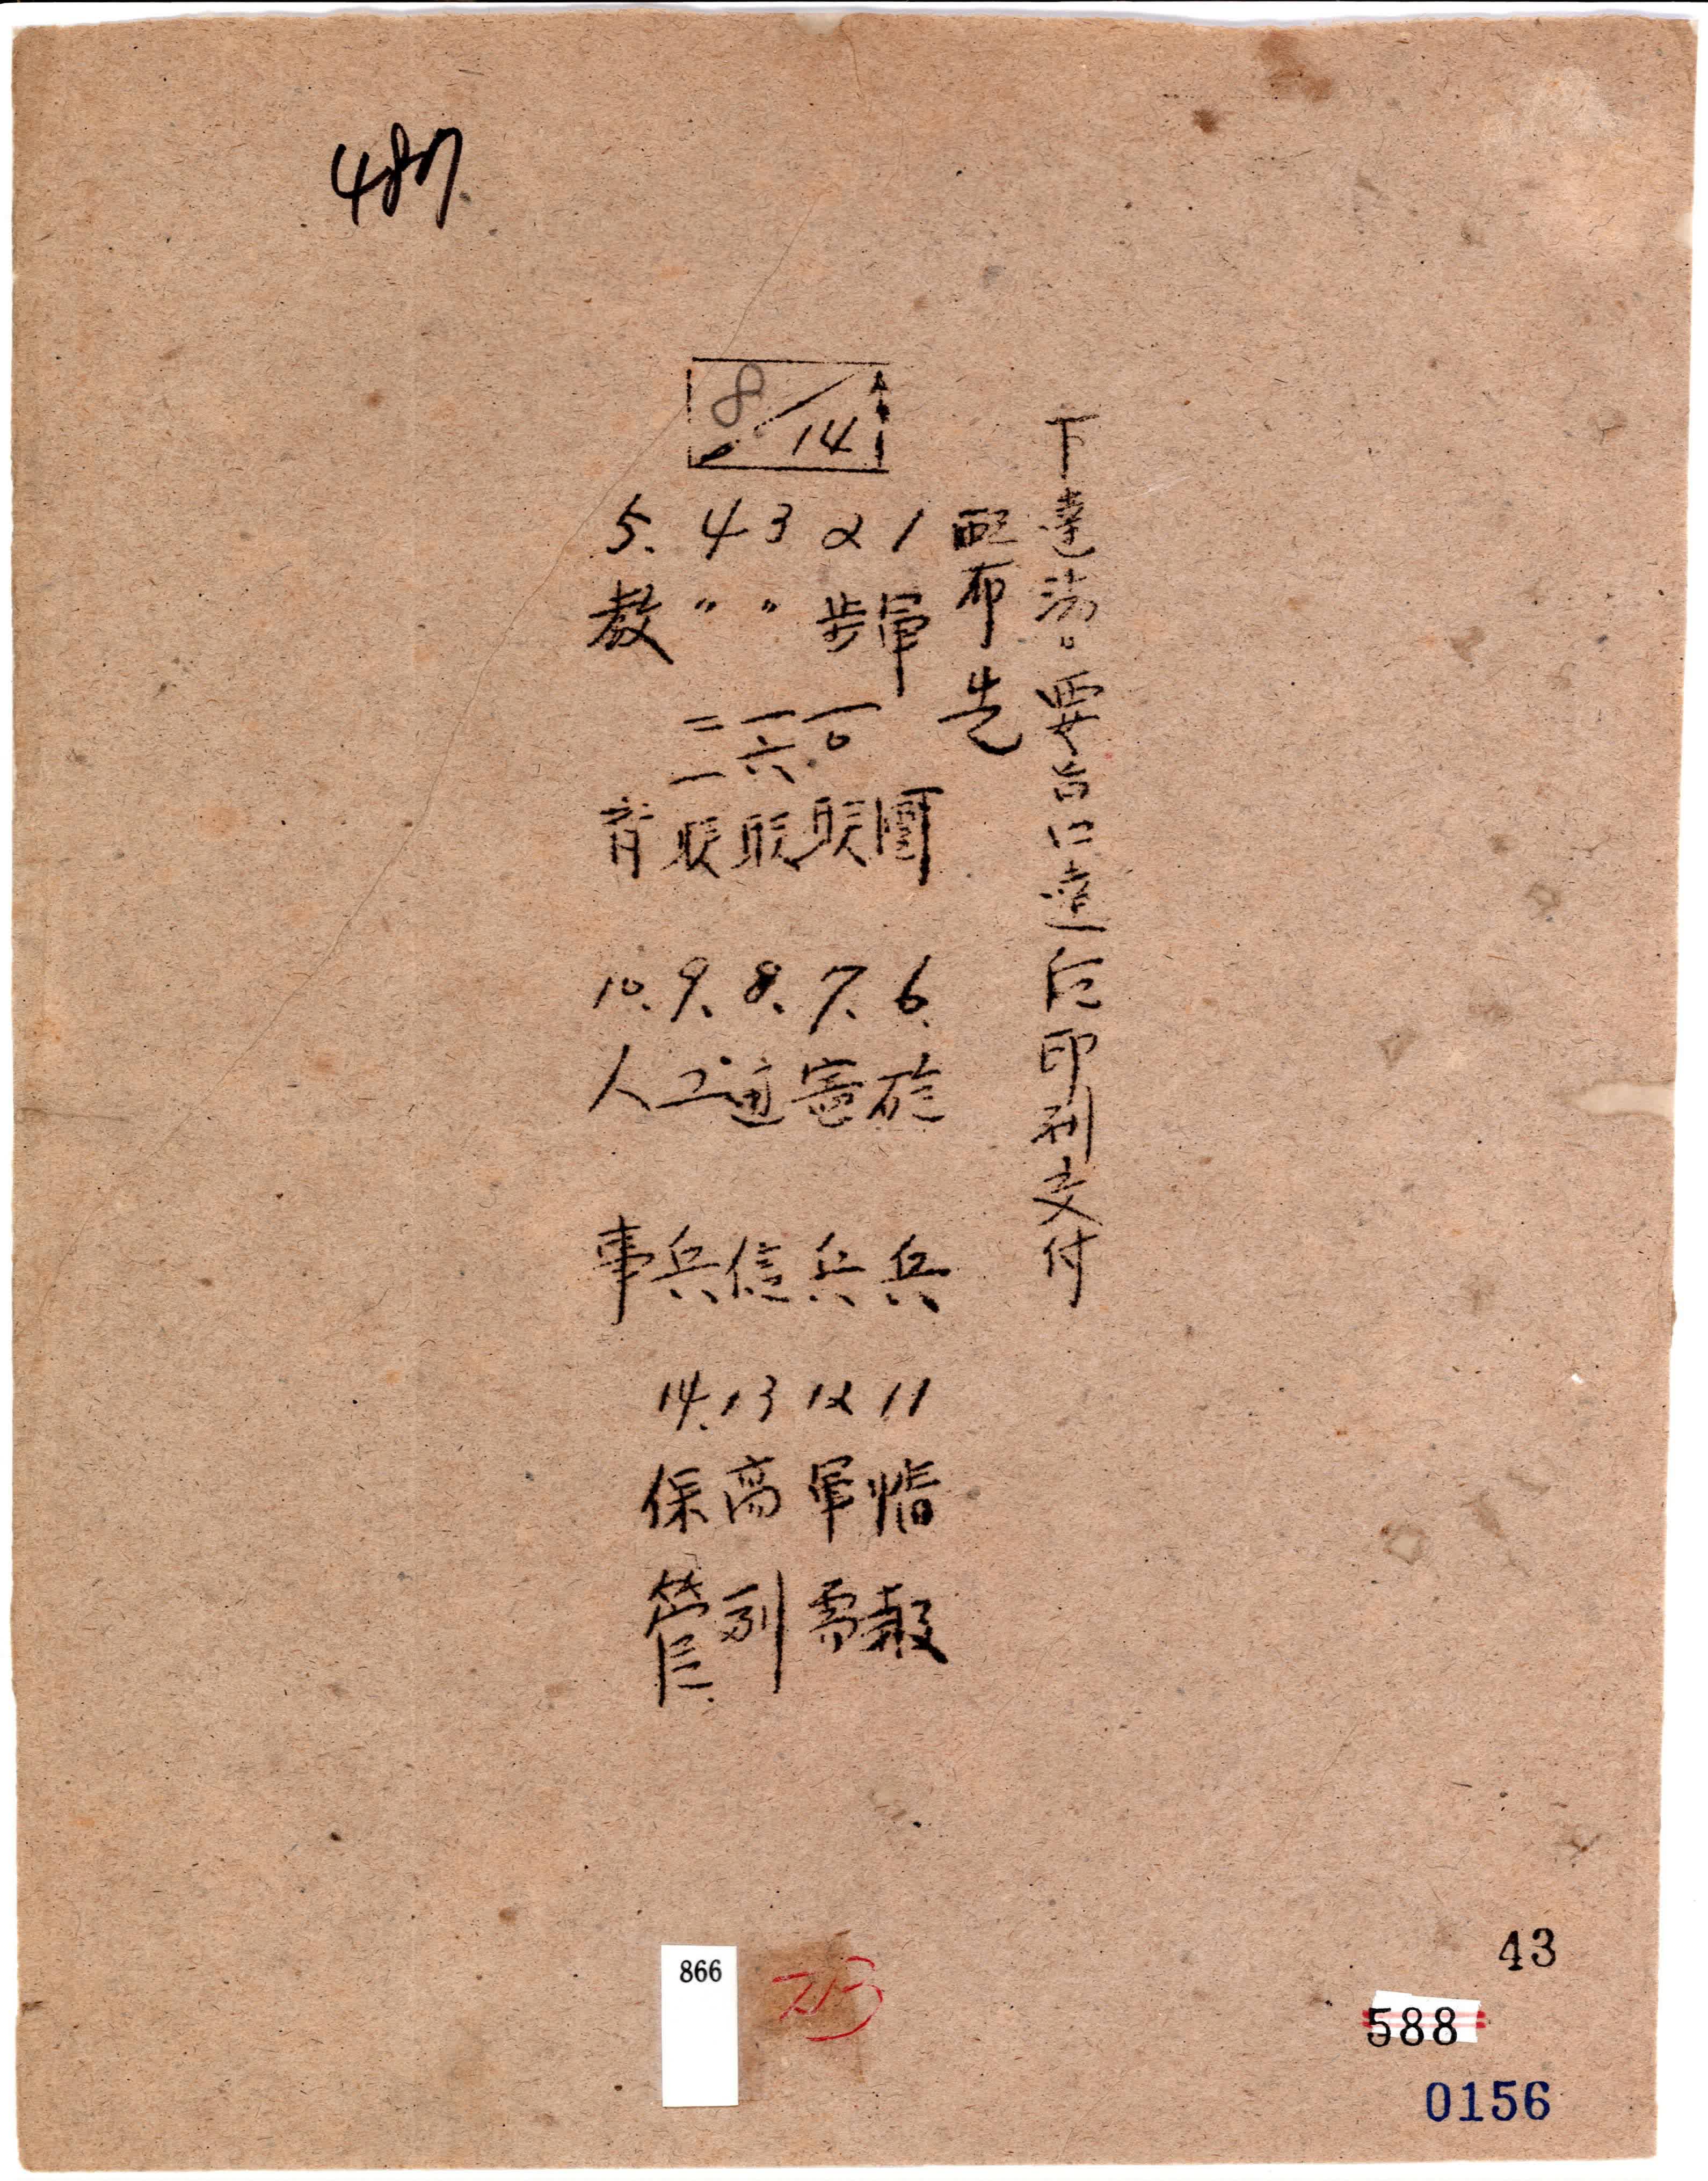 487
8/14
下達法。要旨口達后印刷交付
配布先
1 軍團
2 步一〇联
3 〃一六联
4 〃二一联
5. 教育
6. 砲兵
7. 憲兵
8. 通信
9. 工兵
10. 人事
11 情報
12 軍需
13 高
14. 保管
866
43
588
0156